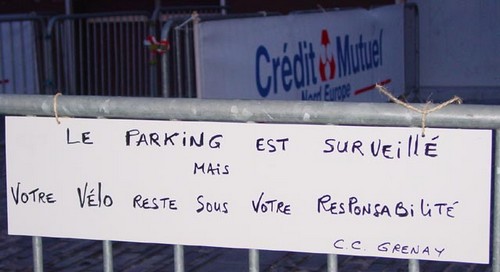 Crédit Mutuel
Nord Europe
LE PARKING EST SURVEILLÉ
MAIS
VOTRE VÉLO RESTE SOUS VOTRE RESPONSABILITÉ
C.C. GRENAY